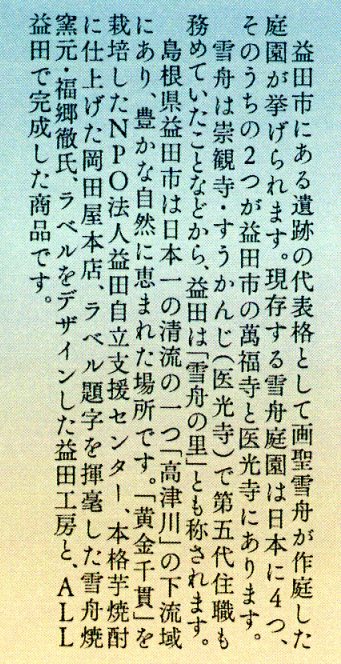 益田市にある遺跡の代表格として画聖雪舟が作庭した
庭園が挙げられます。現存する雪舟庭園は日本に4つ、
そのうちの2つが益田市の萬福寺と医光寺にあります。
雪舟は崇観寺・すうかんじ(医光寺)で第五代住職も
務めていたことなどから、益田は「雪舟の里」とも称されます。
島根県益田市は日本一の清流の一つ「高津川」の下流域
にあり、豊かな自然に恵まれた場所です。「黄金千貫」を
栽培したNPO法人益田自立支援センター、本格芋焼酎
に仕上げた岡田屋本店、ラベル題字を揮毫した雪舟焼
窯元・福郷徹氏、ラベルをデザインした益田工房と、ALL
益田で完成した商品です。